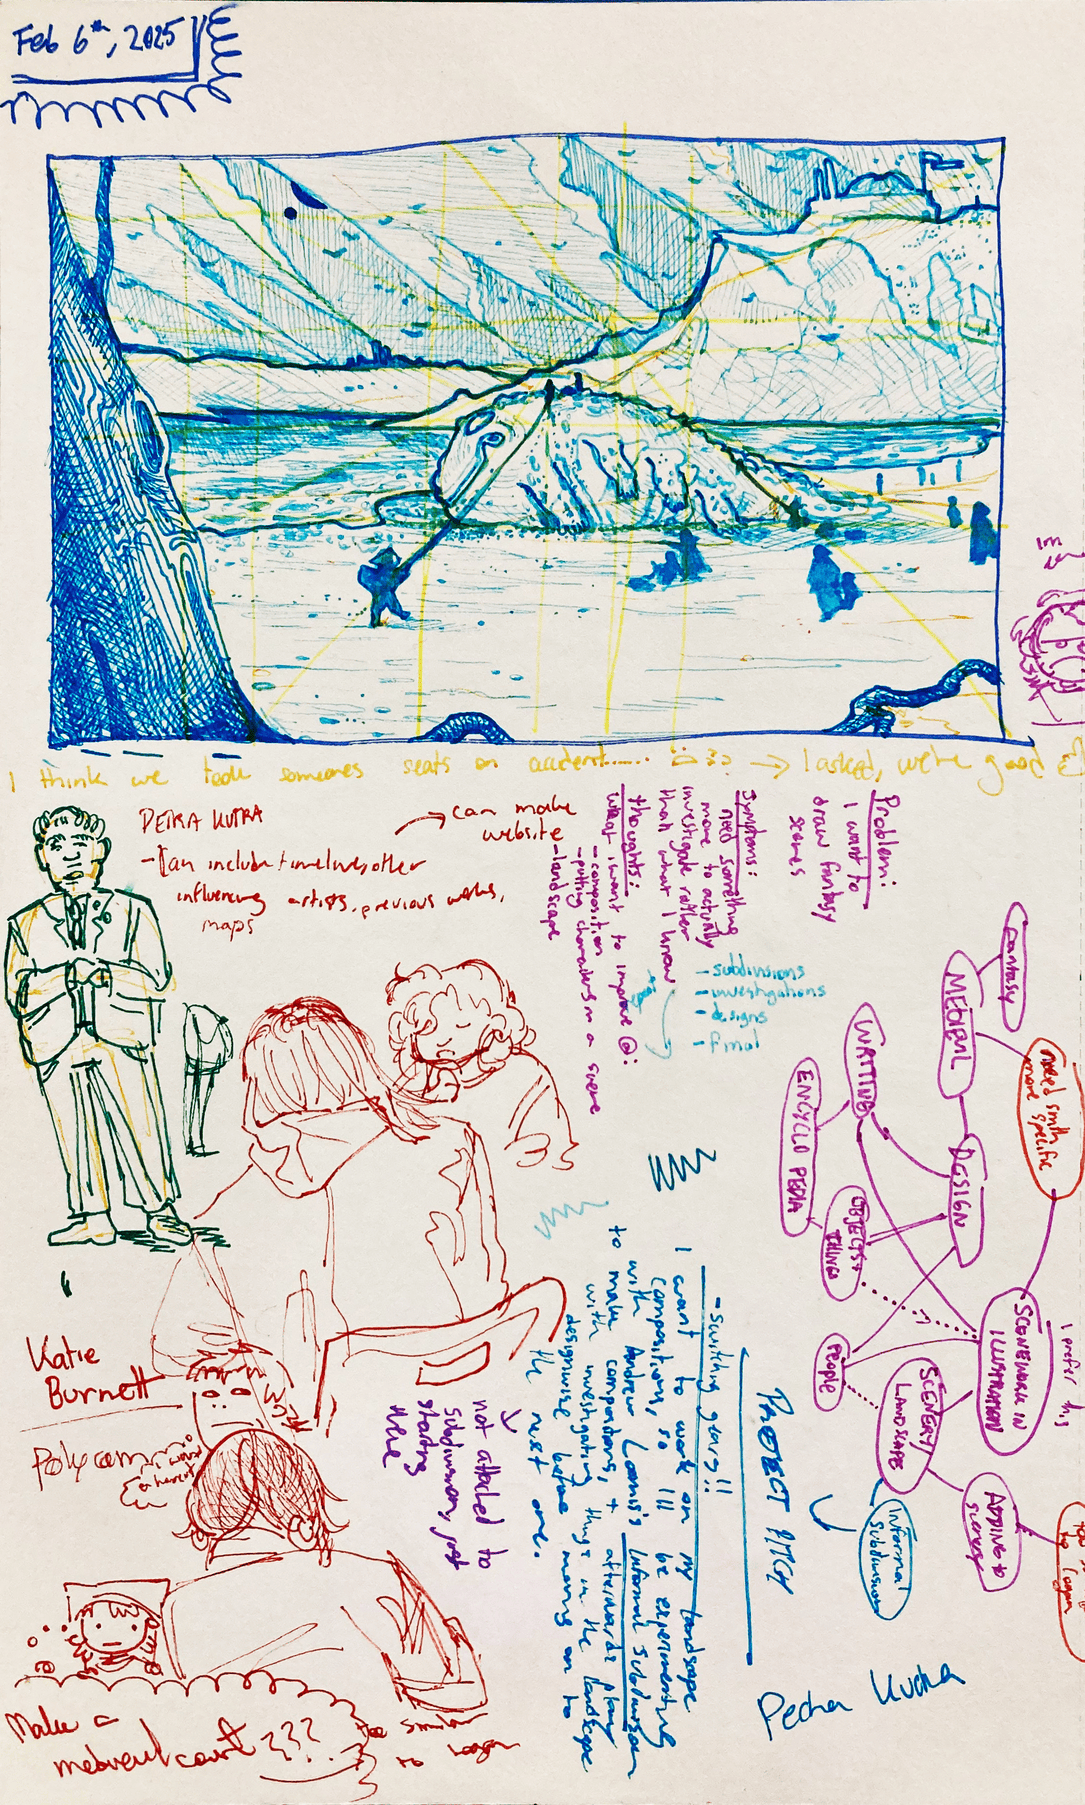 Feb 6th, 2025
I think we took someones seats on accident...... → I asked, we're good
PETRA KUTRA
- Can include timelines, other
influencing artists, previous works,
maps
→ can make
website
Problem:
I want to
draw fantasy
scenes
Symptoms:
need something
more to actually
investigate rather
than what I know
thoughts:
what i want to improve @:
- composition
- putting characters in a scene
- landscape
- subdivisions
- investigations
- designs
- final
repeat
Fantasy
MEDIEVAL
need smth
more specific
WRITING
ENCYCLOPEDIA
DESIGN
OBJECTS +
THINGS
PEOPLE
SCENEWORK IN
ILLUSTRATION
I prefer this
SCENERY
LANDSCAPE
ADDING to
scenery
informal
subdivision
PROJECT PITCH
- switching gears!!
I want to work on my landscape
compositions, so I'll be experimenting
with Andrew Loomis's Informal Subdivision
to make compositions, + afterwards play
with investigating things in the landscape
designwise before moving on to
the next one.
not attached to
subdivision, just
starting
here
Pecha Kucha
Katie
Burnett
Polycam
Make a
medieval court???
too similar
to Logan